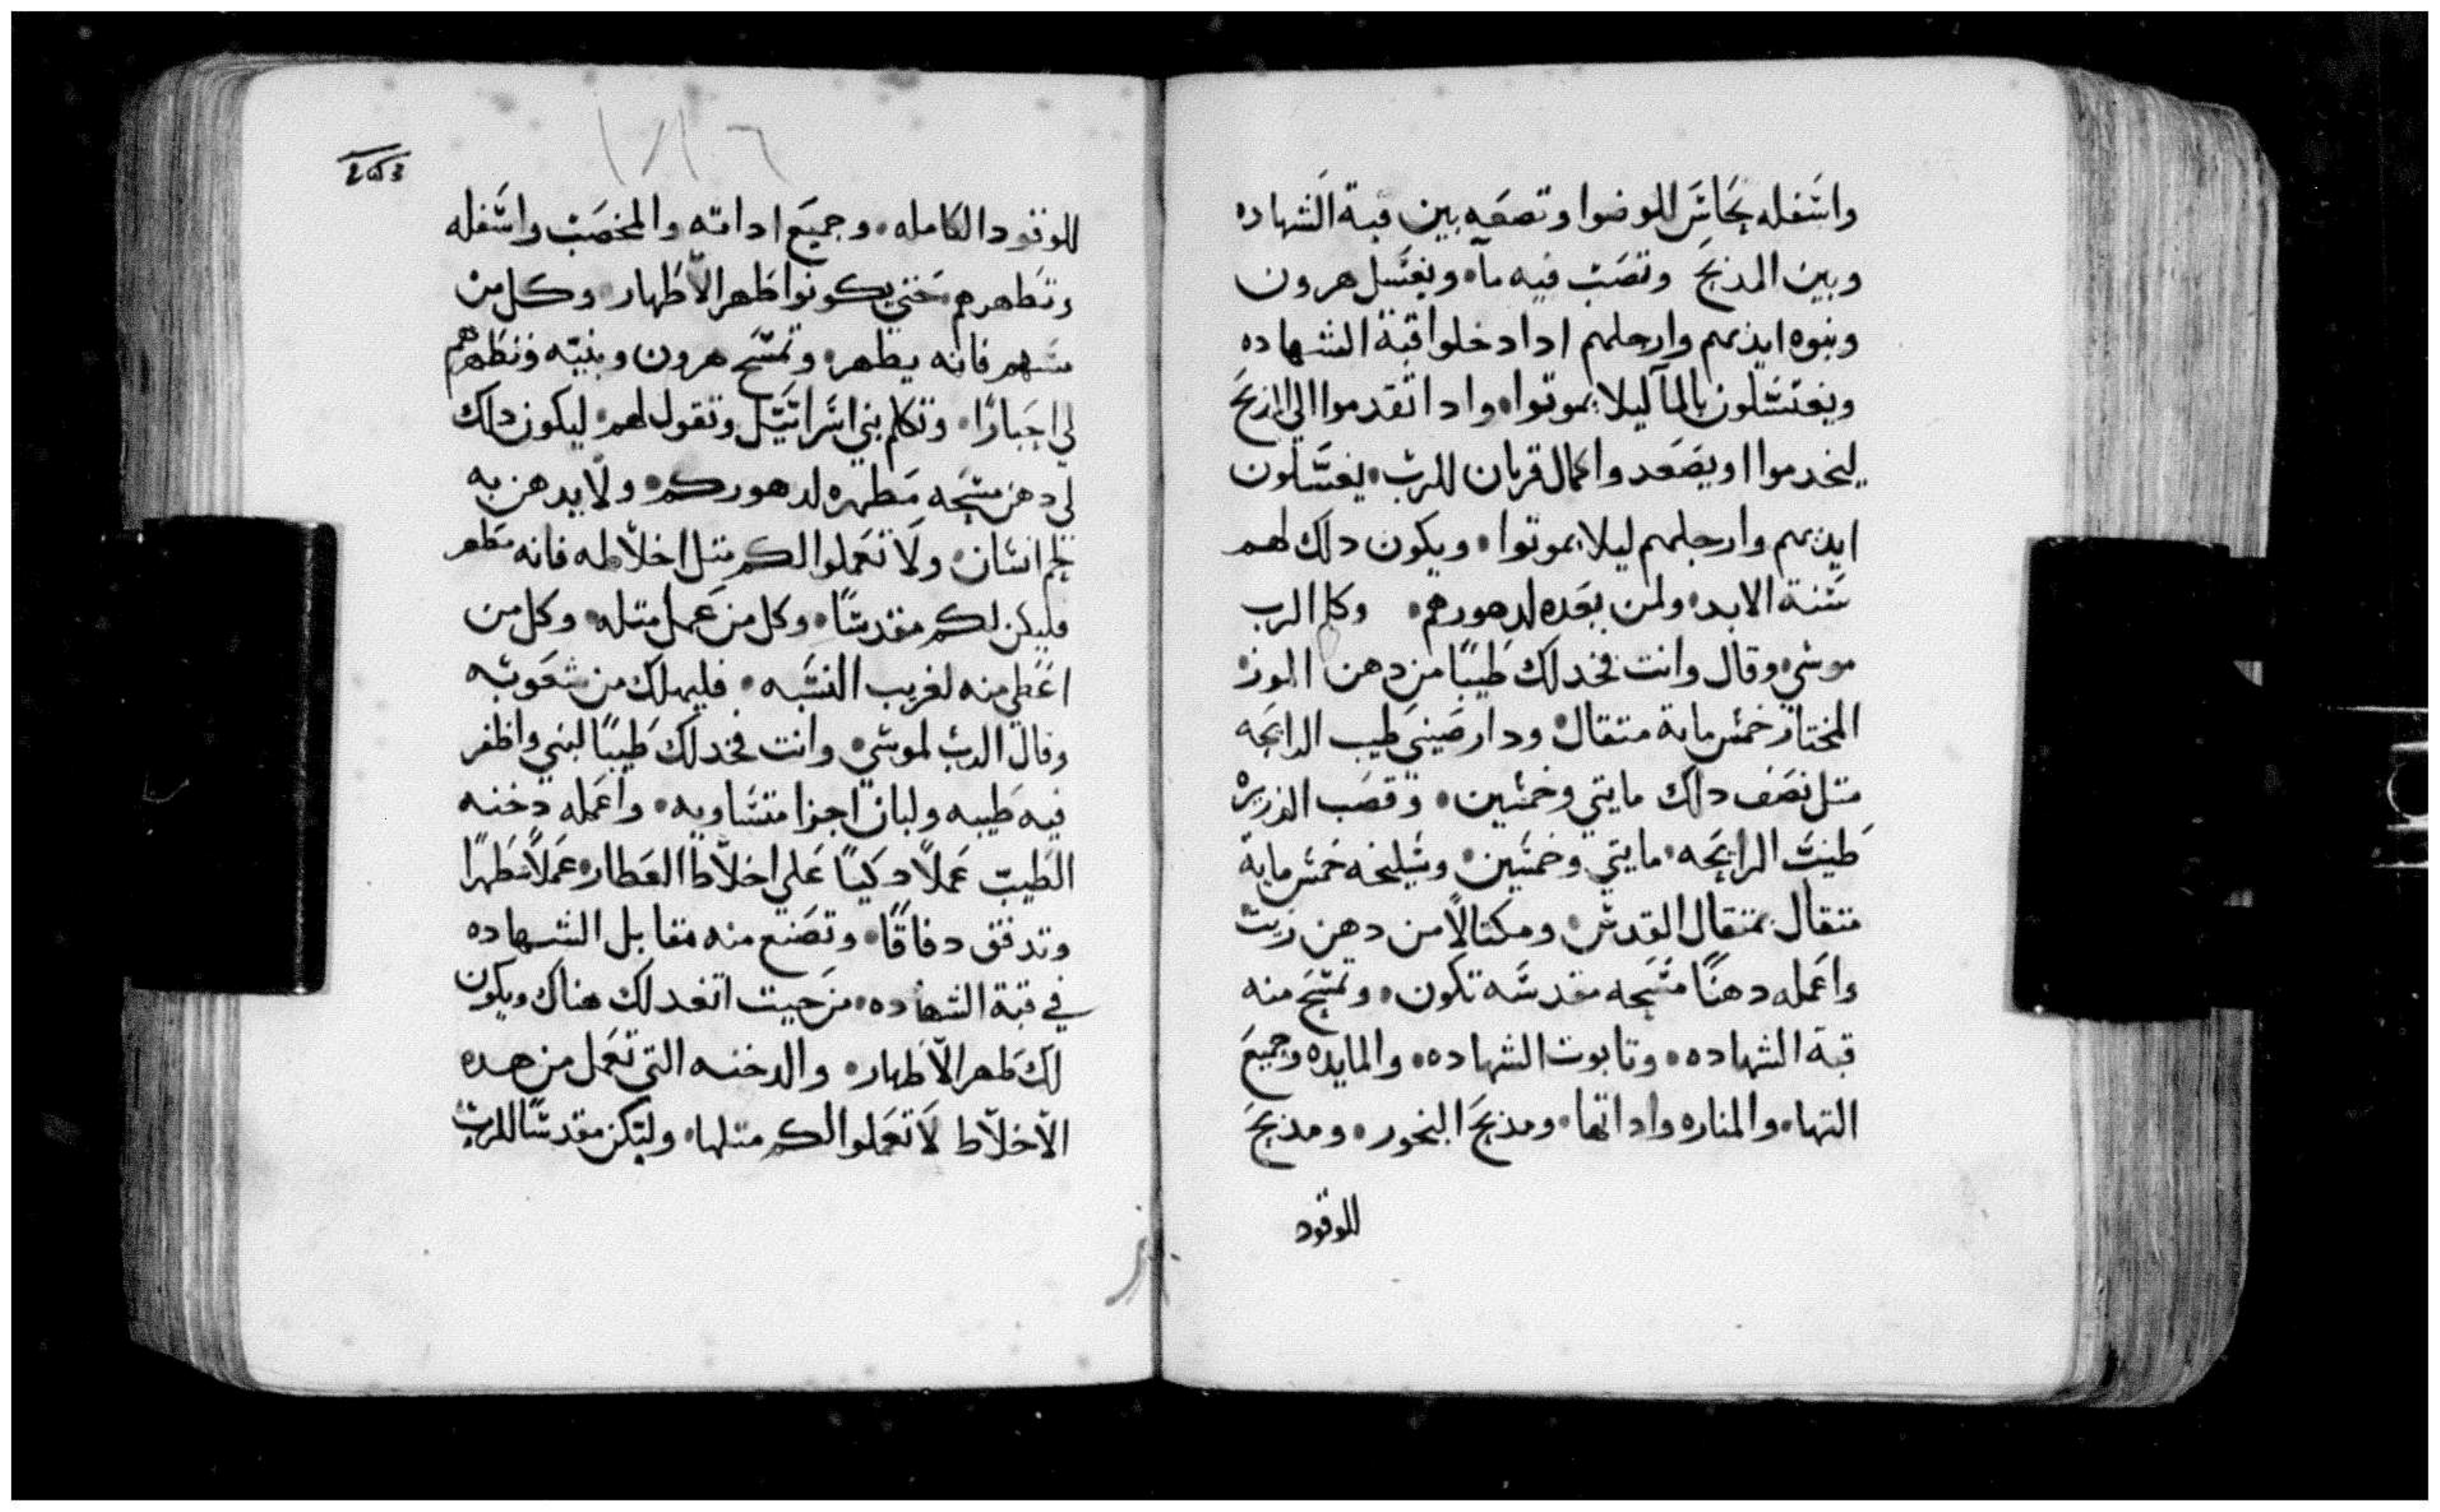 واسفله نحاس للوضوا وتضعه بين قبة الشهاده
وبين المذبح وتصب فيه مآ • ويغتسل هرون
وبنوه ايديهم وارجلهم ادا دخلوا قبة الشهاده
ويغتسلون بالمآ ليلا يموتوا • وادا تقدموا الي المذبح
ليخدموا او يصعدوا اكمال قربان للرب • يغسلون
ايديهم وارجلهم ليلا يموتوا • ويكون دلك لهم
سنة الابد • ولمن بعده لدهورهم • وكلم الرب
موسي وقال وانت فخد لك طيبًا من دهن الموز
المختار خمس ماية متقال • ودار صيني طيب الرايحه
متل نصف دلك مايتي وخمسين • وقصب الذريره
طيب الرايحه • مايتي وخمسين • وسليخه خمس ماية
متقال بمتقال القدس • ومكتالًا من دهن زيت
واعمله دهنًا مسحه مقدسه تكون • وتمسح منه
قبة الشهاده • وتابوت الشهاده • والمايده وجميع
التها • والمناره واداتها • ومذبح البخور • ومذبح
للوقود
للوقود الكامله • وجميع اداته والمخضب واسفله
وتطهرهم حتي يكونوا طهر الاطهار • وكل من
مسهم فانه يطهر • وتمسح هرون وبنيه وتطهرهم
لي احبارًا • وتكلم بني اسراييل وتقول لهم • ليكون دلك
لي دهن مسحه مطهره لدهوركم • ولا يدهن به
لحم انسان • ولا تعملوا لكم متل اخلاطه فانه مطهر
فليكن لكم مقدسًا • وكل من عمل متله • وكل من
اعطي منه لغريب النسبه • فليهلك من شعوبه
وقال الرب لموسي • وانت فخد لك طيبًا لبني واظفر
فيه طيبه ولبان اجزا متساويه • واعمله دخنه
الطيب عملًا دكيًا علي اخلاط العطار • عملًا مطهرًا
وتدقق دقاقًا • وتصنع منه مقابل الشهاده
في قبة الشهاده • من حيت اتعد لك هناك ويكون
لك طهر الاطهار • والدخنه التي تعمل من هده
الاخلاط لا تعملوا لكم متلها • ولتكن مقدسًا للرب